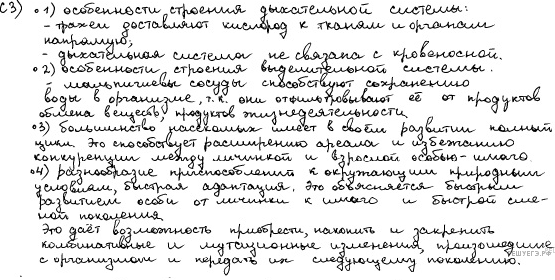 С3) 1) особенности строения дыхательной системы:
- трахеи доставляют кислород к тканям и органам
напрямую;
- дыхательная система не связана с кровеносной.
2) особенности строения выделительной системы:
- мальпигиевы сосуды способствуют сохранению
воды в организме, т.к. они отфильтровывают её от продуктов
обмена веществ, продуктов жизнедеятельности
3) большинство насекомых имеет в своём развитии полный
цикл. Это способствует расширению ареала и избежанию
конкуренции между личинкой и взрослой особью - имаго.
4) разнообразие приспособлений к окружающим природным
условиям, быстрая адаптация. Это объясняется быстрым
развитием особи от личинки к имаго и быстрой сме-
ной поколения
Это даёт возможность приобрести, накопить и закрепить
комбинативные и мутационные изменения, произошедшие
с организмом и передать их следующему поколению.
РЕШУЕГЭ.РФ